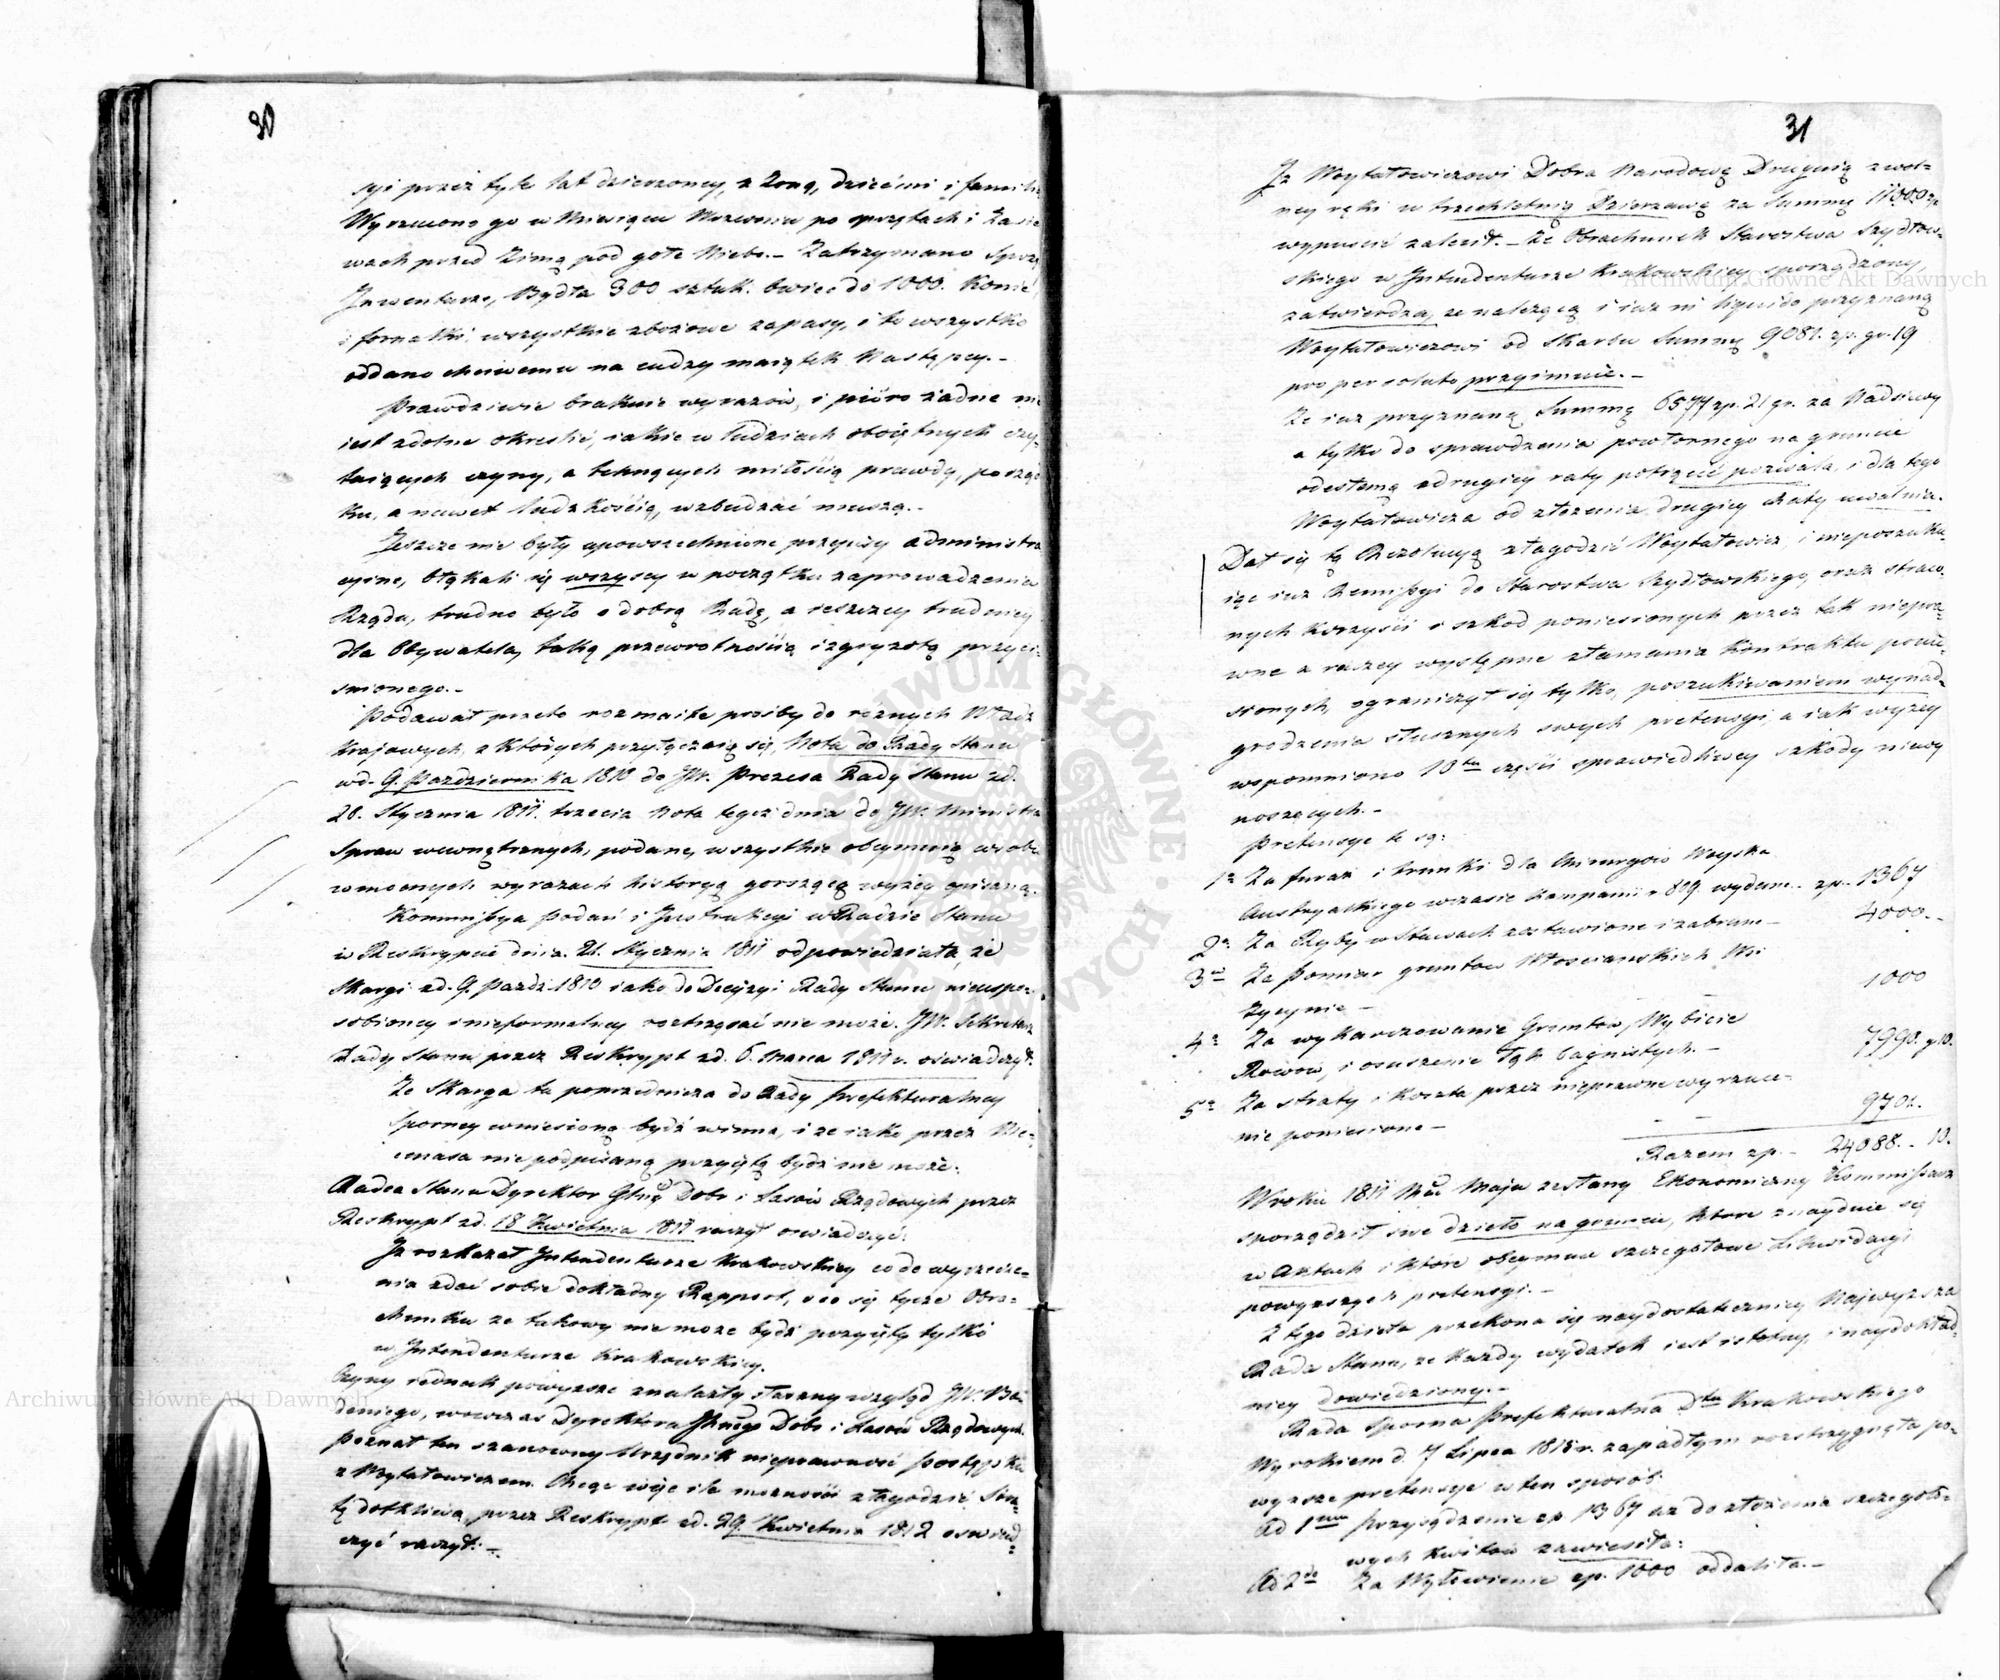 30
syi przez tyle lat dzierzoney, z Zoną, dziećmi i familią
Wyrzucono go w Miesiącu Marcu po sprzętach i Zasie
wach przed Zimą pod gołe Niebo.– Zatrzymano Sprzę
Inwentarze, Bydła 300 sztuk. Owiec do 1000. Konie
i fornalki, wszystkie zbożowe zapasy, i to wszystko
oddano chciwemu na cudzy maiątek Następcy.–
Prawdziwie braknie wyrazów, i pióro żadne nie
iest zdolne okreslić, iakie w ludziach oboiętnych czy-
taiących czyny, a tchnących miłością prawdy, porząd
ku, a nawet ludzkością, wzbudzać muszą.–
Jeszcze nie były upowszechnione przepisy administra
cyine, błąkali się wszyscy w początku zaprowadzenia
Rządu, trudno było o dobrą Radę, a ieszcze trudniey
dla Obywatela, taką przewrotnością i zgryzotą przyci-
snionego.–
Podawał przeto rozmaite prosby do różnych Władz
krajowych, z których przyłączaią się, Nota do Rady Stanu
w d. 9. Pazdziernika 1810 do JW. Prezesa Rady Stanu z d.
28. Stycznia 1811. trzecia Nota tegoż dnia do JW. Ministra
Spraw wewnętrznych, podane, wszystkie obeymuią w sobie
w mocnych wyrazach historyą gorszącą wyżey opisaną.
Kommissya Podań i Instrukcyi w Radzie Stanu
w Reskrypcie dnia 21. Stycznia 1811 odpowiedziała, że
Skargi z d. 9. Pazdz. 1810 iako do Decyzyi Rady Stanu nieuspo-
sobioney i nieformalney roztrząsać nie może. JW. Sekretarz
Rady Stanu przez Reskrypt z d. 6. Marca 1811 r. oświadczył.
Ze Skarga ta poprzedniczo do Rady Prefekturalney
Sporney wniesioną bydź winna, i że iako przez Me-
cenasa nie podpisaną przyiętą bydź nie może.
Radca Stanu Dyrektor Głny Dobr i Lasów Rządowych przez
Reskrypt z d. 18 Kwietnia 1811 raczył oswiadczyć:
Iż rozkazał Intendenturze Krakowskiey co do wyrzuce-
nia zdać sobie dokładny Rapport, a co się tycze Obra-
chunku ze takowy nie może bydź przyięty tylko
w Intendenturze Krakowskiey.
Czyny iednak powyzsze znalazły staranny wzgląd JW. Ba-
deniego, wowczas Dyrektora Głnego Dobr i Lasów Rządowych.
Poznał ten szanowny Urzędnik nieprawność Postępku
z Woytatowiczem. Chcąc więc ile możności złagodzić Stra-
tę dotkliwą, przez Reskrypt z d. 29. Kwietnia 1812 oswiad-
czyć raczył.–
31
Iż Woytatowiczowi Dobra Narodowe Drugnią z wol-
ney ręki w trzechletnią Dzierzawę za Summę 11000 zp
wypuscić zalecił.– Ze Obrachunek Starostwa Szydłow-
skiego w Intendenturze Krakowskiey sporządzony
zatwierdza, ze należącą i iuz in liquido przyznaną
Woytatowiczowi od Skarbu Summę 9081. zp. gr. 19
pro persoluto przyimuie.–
Ze iuz przyznaną Summę 6577 zp. 21 gr. za Nadsiewy
a tylko do sprawdzenia powtornego na gruncie
odesłaną z drugiey raty potrącić pozwala, i dla tego
Woytatowicza od złozenia drugiey Raty uwalnia.
Dał się tą Rezolucyą złagodzić Woytatowicz, i nieposzuku-
iąc iuz Remissyi do Starostwa Szydłowskiego, oraz straco-
nych korzyści i szkod poniesionych przez tak niepra-
wne a raczey występne złamanie Kontraktu ponie-
sionych, ograniczył się tylko, poszukiwaniem wynad-
grodzenia słusznych swych pretensyi, a iak wyzey
wspomniono 10tey części sprawiedliwey szkody niewy
noszących.–
Pretensye te są:
1o Za furaż i trunki dla Chirurgów Woyska
Austryackiego w czasie kampanii r 809. wydane.. zp. 1367
2o Za Ryby w Stawach zostawione i zabrane – 4000.–
3o Za Pomiar gruntów Włościanskich Wsi
Życynie – 1000
4o Za wykarczowanie Gruntów, Wybicie
Rowów, i osuszenie łąk bagnistych.– 7990. g 10.
5o Za straty i koszta przez nieprawne wyrzuce-
nie poniesione – 9701.
Razem zp. – 24088. – 10.
W roku 1811 Mca Maja zesłany Ekonomiczny Kommissarz
sporządził swe dzieło na gruncie, ktore znayduie się
w Aktach i które obeymuie szczegołowe Likwidacyi
powyzszych pretensyi.–
Z tego dzieła przekona się naydostateczniey Najwyzsza
Rada Stanu, ze każdy wydatek iest istotny, i naydokład-
niey dowiedziony.–
Rada Sporna Prefekturalna Dtu Krakowskiego
Wyrokiem d. 7 Lipca 1815 r. zapadłym rozstrzygnęła po-
wyzsze pretensye w ten sposób.
Ad 1mum Przysądzenie zp 1367 az do złożenia szczegoło-
wych kwitów zawiesiła:
Ad 2do Za Wyłowienie zp. 1000 oddaliła.–
Archiwum Główne Akt Dawnych
Archiwum Główne Akt Dawnych
ARCHIWUM GŁÓWNE AKT DAWNYCH